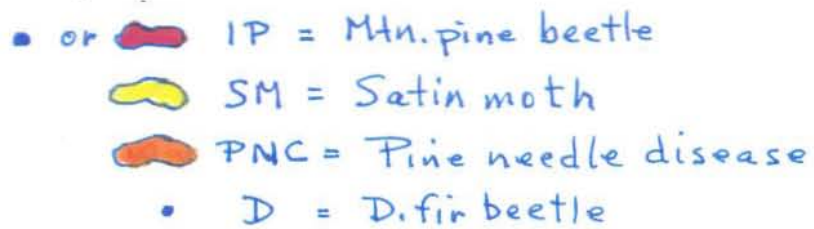 • or IP = Mtn. pine beetle
SM = Satin moth
PNC = Pine needle disease
• D = D. fir beetle